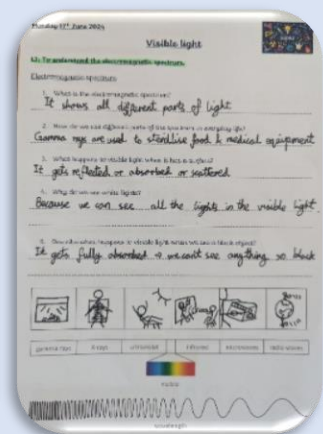 12th June 2024
Visible light
LI: To understand the electromagnetic spectrum.
Electromagnetic spectrum
1. What is the electromagnetic spectrum?
It shows all different parts of light
2. How do we use different parts of the spectrum in everyday life?
Gamma rays are used to sterilise food & medical equipment
3. What happens to visible light when it hits a surface?
It gets reflected or absorbed or scattered
4. Why do we see white light?
Because we can see all the lights in the visible light
5. what happens to visible light when we see a black object?
It gets fully absorbed → we can't see anything so black
gamma rays
X-rays
ultraviolet
infrared
microwaves
radio waves
visible
wavelength